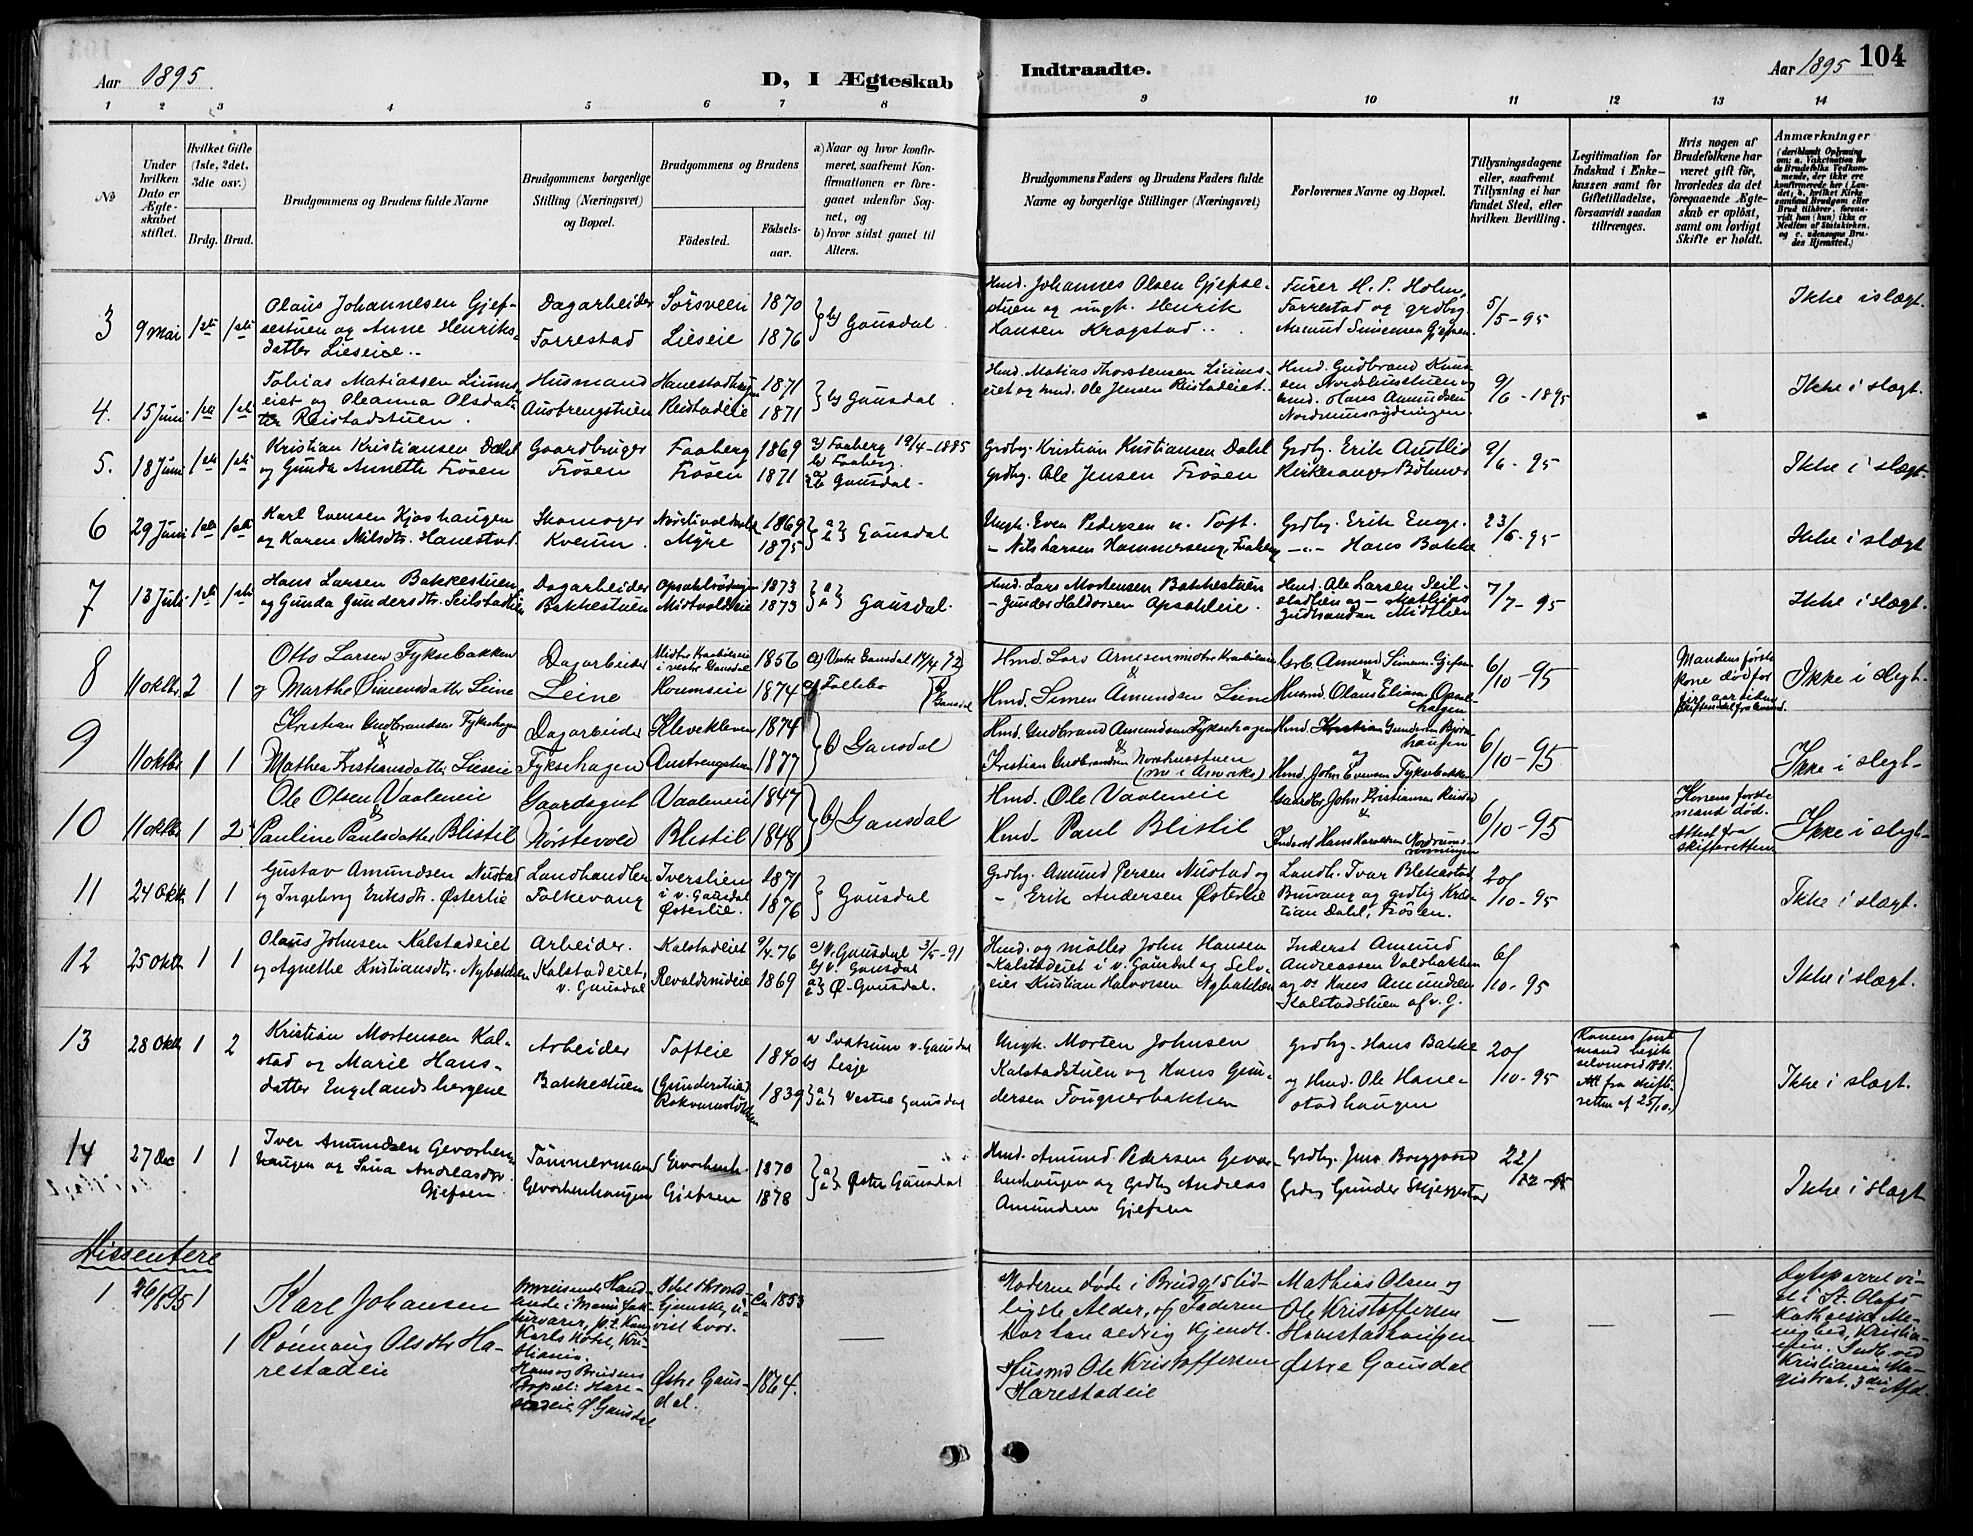 Aar 1895.
D, I Ægteskab
Indtraadte.
Aar 1895
104
1 2 3 4 5 6 7 8 9 10 11 12 13 14
№
Under hvilken Dato er Ægteskabet stiftet.
Hvilket Gifte (1ste, 2det, 3die osv.)
Brdg. Brud.
Brudgommens og Brudens fulde Navne
Brudgommens borgerlige Stilling (Næringsvei) og Bopæl.
Brudgommens og Brudens
Födested.
Födsels-aar.
a) Naar og hvor konfirmeret, saafremt Konfirmationen er foregaaet udenfor Sognet, og
b) hvor sidst gaaet til Alters.
Brudgommens Faders og Brudens Faders fulde Navne og borgerlige Stillinger (Næringsvei)
Forlovernes Navne og Bopæl.
Tillysningsdagene eller, saafremt Tillysning ei har fundet Sted, efter hvilken Bevilling.
Legitimation for Indskud i Enkekassen samt for Giftetilladelse, forsaavidt saadan tiltrænges.
Hvis nogen af Brudefolkene har været gift för, hvorledes da det foregaaende Ægteskab er oplöst, samt om lovligt Skifte er holdt.
Anmærkninger
(deriblandt Oplysning om: a. Vakcination for de Brudefolks Vedkommende, der ikke ere konfirmerede her i Landet; b. hvilket Kirkesamfund Brudgom eller Brud tilhörer, forsaavidt han (hun) ikke er Medlem af Statskirken, og c. udensogns Brudes Hjemsted.)
3 9 Mai 1ste 1ste
Olaus Johannesen Gjef-
sestuen og Anne Henriks-
datter Lieseie..
Dagarbeider
Forrestad
Sørsveen 1870
Lieseie 1876
b) Gausdal.
Hmd. Johannes Olsen Gjefse-
stuen og ungk. Henrik
Hansen Kragstad..
Furer H. P. Holm,
Forrestad og grdbg.
Amund Simensen Gjefsen
5/5 - 95
Ikke i slægt.
4. 15 Juni 1ste 1ste
Tobias Matiassen Liums-
eiet og Oleanna Olsdat-
ter Reistadstuen.
Husmand
Austrengstuen
Hanestadhaugen 1871
Reistadeie 1871
b) Gausdal.
Hmd. Matias Thorstensen Liums-
eiet og hmd. Ole Jensen Reistadeiet.
Hmd. Gudbrand Knud-
sen Nordslimstuen og
hmd. Hans Amundsen
Nordrumsrydningen.
9/6 - 1895
Ikke i slægt.
5. 18 Juni 1ste 1ste
Kristian Kristiansen Dahl
og Gunda Annette Frøsen
Gaardbruger
Frøsen
Faaberg 1869
Frøsen 1871
a) Faaberg 19/4-1885
b) Faaberg.
a b Gausdal.
Grdbg. Kristian Kristiansen Dahl
Grdbg. Ole Jensen Frøsen
Grdbg. Erik Austlid
Kirkesanger Böhmer
9/6 - 95
Ikke i slægt.
6 29 Juni 1ste 1ste
Karl Evensen Kjoshaugen
og Karen Nilsdtr. Hanestad.
Skomager
Kveum.
1869
Myre 1875
a b Gausdal
Ungk. Even Pedersen n. Toft.
- Nils Larsen Hammerseng, Faaberg
Grdbg. Erik Enge.
-"- Hans Bakke
23/6 - 95
Ikke i slægt
7 13 Juli 1ste 1ste
Hans Larsen Bakkestuen
og Gunda Gundersdtr. Seilstadlien
Dagarbeider
Bakkestuen
1873
Midtvoldeie 1873
a b Gausdal.
Hmd. Lars Mortensen Bakkestuen
- Gunder Haldorsen Opsahleie.
Hmd. Ole Larsen Seil-
stadlien og - Mathias
Gudbrandsen Midtlien
7/7 - 95
Ikke i slægt.
8 11 oktbr 2 1
Otto Larsen Fyksebakken
og Marthe Simensdatter Leine
Dagarbeider
Leine
i vestre Gausdal 1856
1874
a) Vestre Gausdal
Follebo
Gausdal
Hmd. Lars Arnesen
&
Hmd. Simen Amundsen Leine
Amund Simens. Gjefsen
&
Husmd. Olaus Eliasen
6/10 - 95
Mandens første
kone død for
fire aar siden
Ikke i slegt.
9 11 oktbr 1 1
Kristian Gudbrandsen Fyksehagen
&
Mathea Kristiansdatter Lieseie
Dagarbeider
Fyksehagen
Klevekleven 1874
Austrengstuen 1877
b) Gausdal
Hmd. Gudbrand Amundsen Fyksehagen
&
Kristian Gudbrandsen Norshusstuen
(nu i Amerika)
Hmd. Kristian Gundersen
og
Hmd. John Evensen Fyksebakken
6/10 - 95
Ikke i slegt-
10 11 oktbr 1 2
Ole Olsen Vaaleneie
&
Pauline Paulsdatter Blistil
Gaardsgut
Nörstevold
Vaaleneie 1847
Blestil 1848
b) Gausdal
Hmd. Ole Vaaleneie
Hmd. Paul Blistil
John Kristiansen
&
Inderst Hans Haraldsen
6/10 - 95
Konens første
mand død.
Attest fra
skifteretten
Ikke i slegt-
11 24 Oktb 1 1
Gustav Amundsen Nustad
og Ingeborg Eriksdtr. Østerlie
Landhandler
Folkevang
Iverslien
i v. Gausdal 1871
Østerlie. 1876
Gausdal
Grdbg. Amund Persen Nustad og
- Erik Andersen Østerlie
Landh. Ivar Blekastad
og grdbg Kris-
tian Dahl, Frøsen.
20/10 - 95
Ikke i slægt.
12 25 Oktb 1 1
Olaus Johnsen Kalstadeiet
og Agnethe Kristiansdtr. Nybakken
Arbeider.
Kalstadeiet,
v. Gausdal
Kalstadeiet 9/4 76
Revaldsmideie 1869
a) V. Gausdal 3/5-91
b) v. Gausdal
a b Ø. Gausdal.
Hmd. og møller John Hansen
Kalstadeiet i v. Gausdal og Selv-
eier Kristian Halvorsen Nybakken
Inderst Amund
Andreassen Voldbakken
og Hans Amundsen
Kalstadstuen af v. G.
6/10 - 95
Ikke i slægt.
13 28 Oktb 1 2
Kristian Mortensen Kal-
stad og Marie Hans-
datter Engelandsbergene
Arbeider
Bakkestuen
Tofteie 1840
(Grunderstuen) 1839
a Svatsum v. Gausdal
b) Lesje
a b Vestre Gausdal
Ungk. Morten Johnsen
Kalstadstuen og Hans Gun-
dersen Fougnerbakken
Grdbg. Hans Bakke
og Hmd. Ole Hane-
stadhaugen
20/10 - 95
Konens først
mand begik
selvmord 1881.
Att fra skifte-
retten af 25/10.
Ikke i slægt.
14 27 Dec 1 1
Iver Amundsen Gevorhen-
haugen og Sina Andreasdtr
Gjefsen.
Tömmermand
Gevorhenhaugen
1870
Gjefsen 1878
a b Østre Gausdal
Hmd. Amund Pedersen Gevor-
henhaugen og Grdbg Andreas
Amundsen Gjefsen
Grdbg. Jens Borggaard
Grdbg Gunder Skjeggestad
22/12 - 95
Ikke i slægt
Dissentere
1 26/8 95 1
Karl Johansen
1 Rönnaug Olsdtr Ha-
restadeie
Omreisende Hand-
lende i Manufak-
turvarer, p.t. Kong
Karls Hotel, Kri-
stiania.
Hans og Brudens
Bopæl: Hare-
stadeie, Ø. Gausdal
Ca 1853
Østre Gaus-
dal. 1864.
Moderen døde i Brudg.s tid-
ligste Alder, og Faderen
har han aldrig kjendt.
Husmd Ole Kristoffersen
Harestadeie
Mathias Olsen og
Ole Kristoffersen
Harestadhaugen
Østre Gausdal
St. Olafs
Katholske Me-
nighed, Kristia-
nia. Indt. ved
Kristiania Ma-
gistrat, 3die Afd.